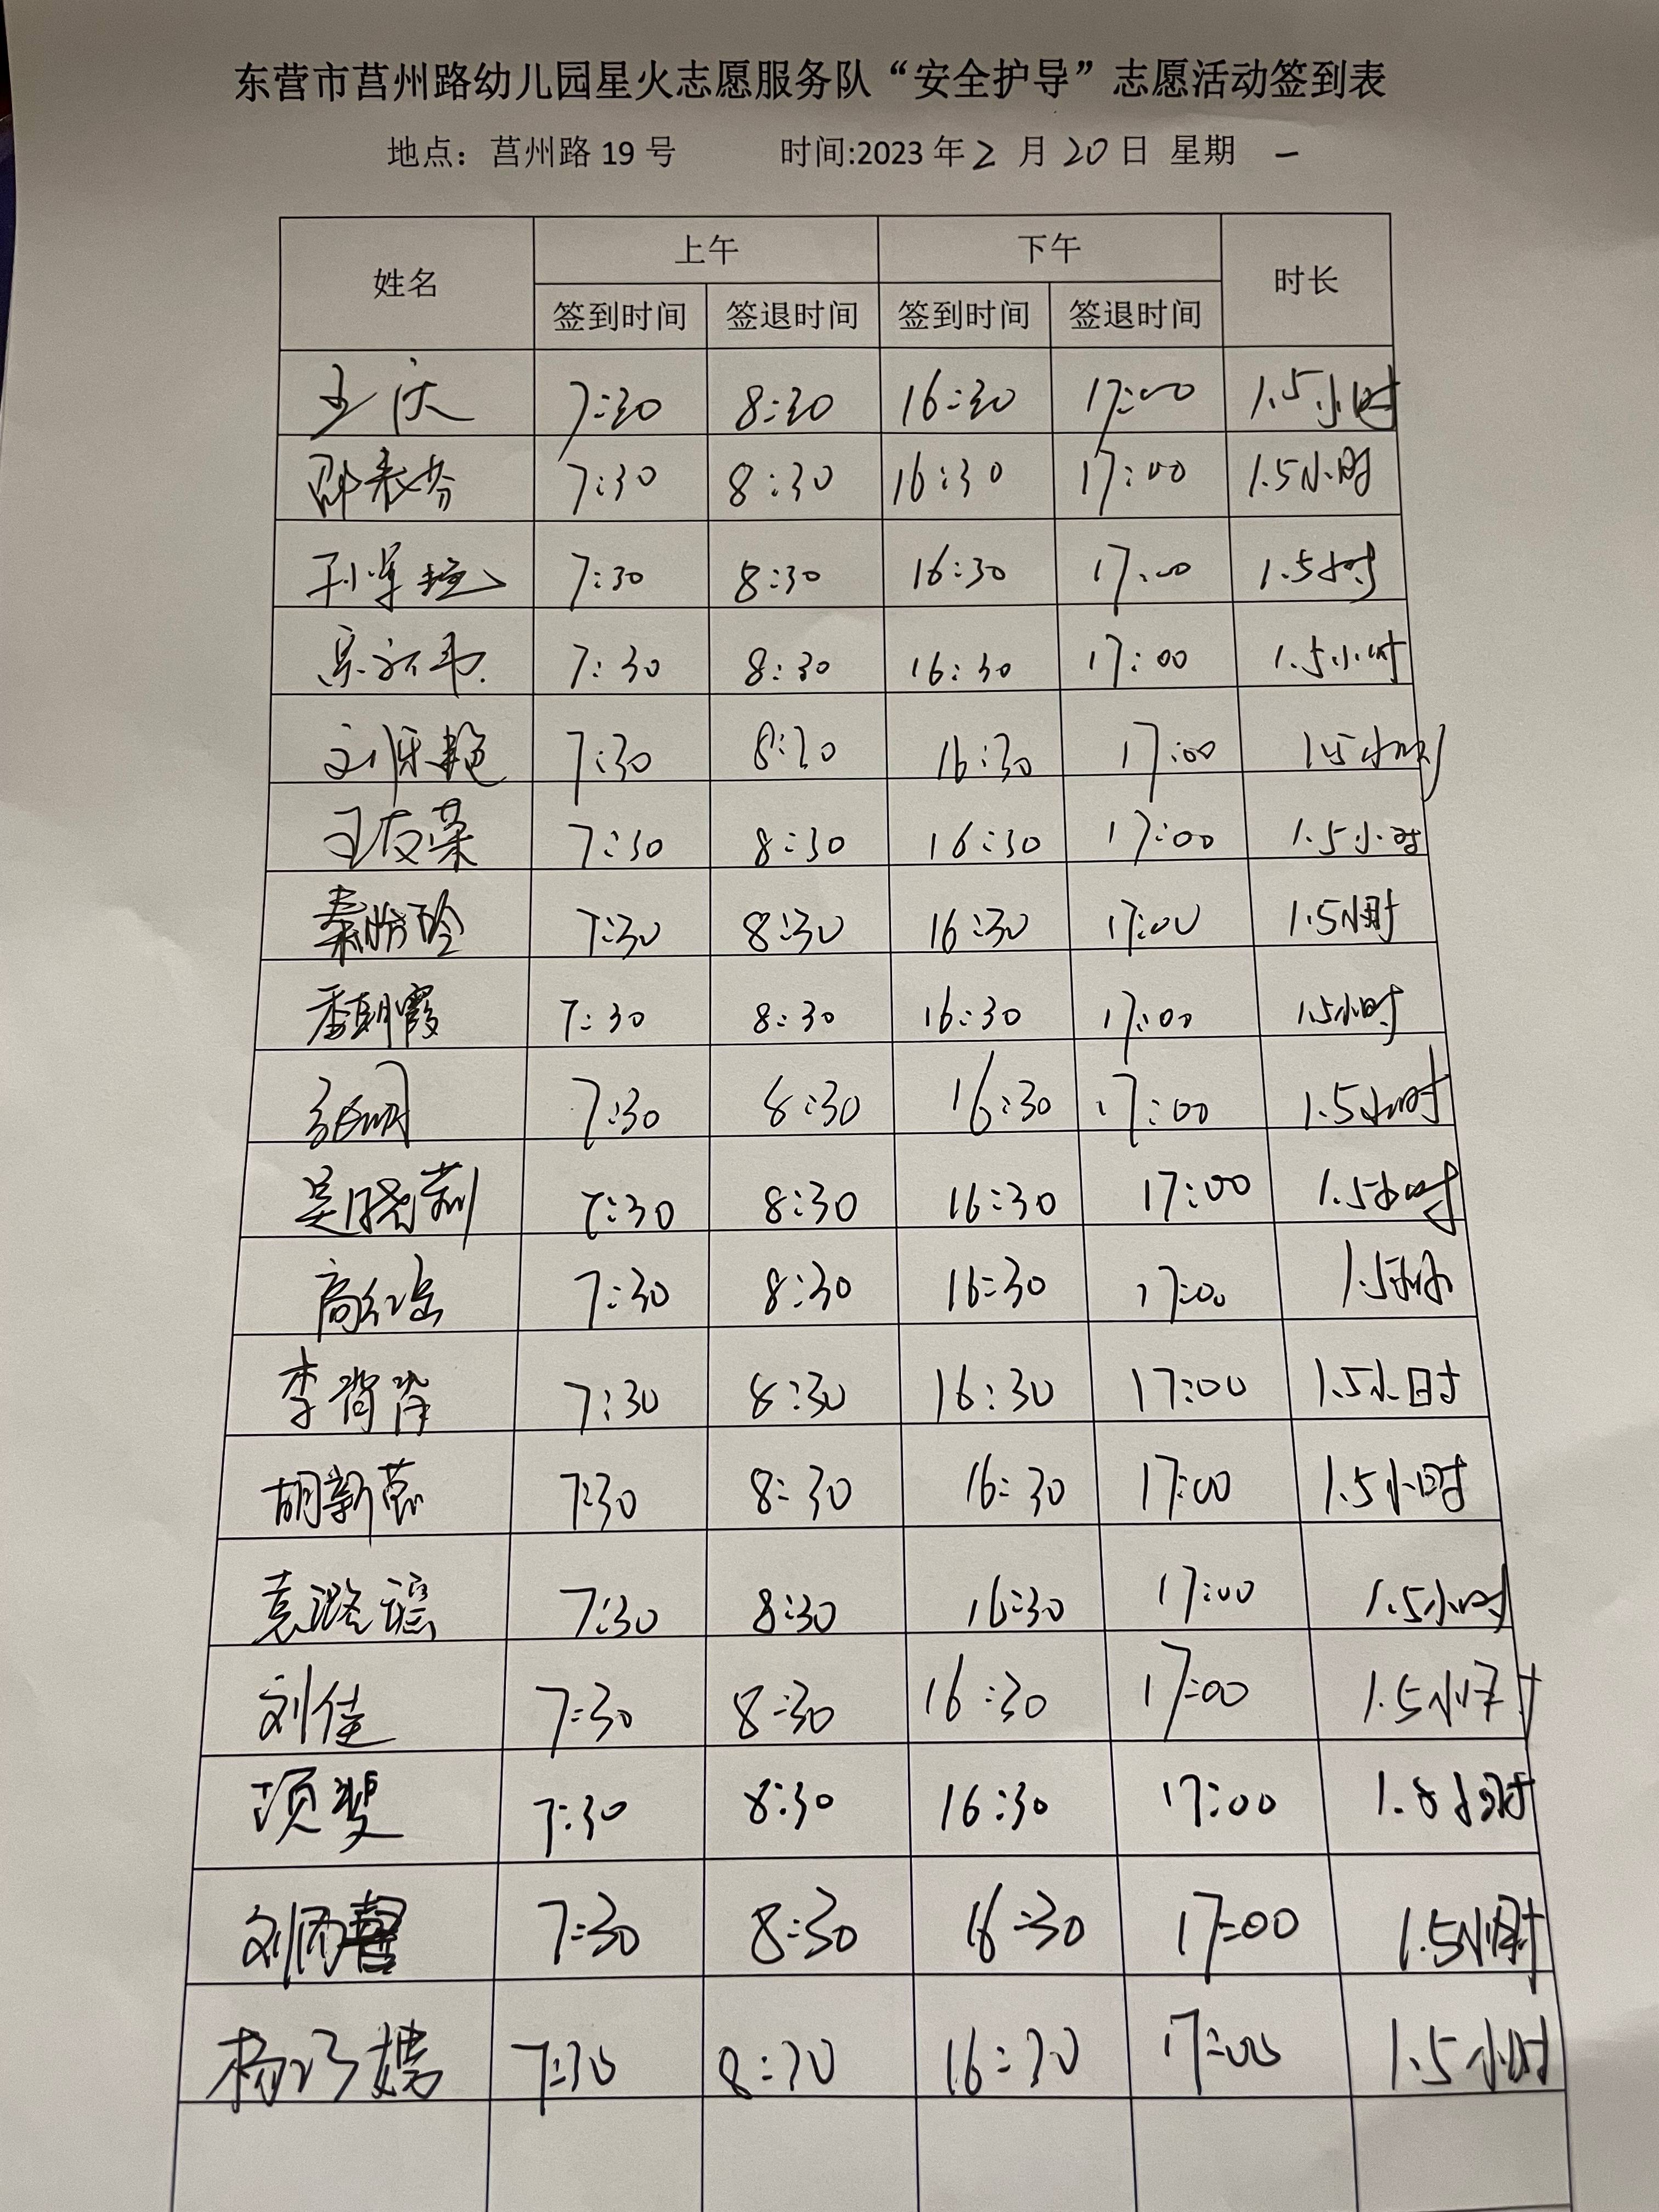 东营市莒州路幼儿园星火志愿服务队“安全护导”志愿活动签到表
地点：莒州路 19 号 时间:2023 年 2 月 20 日 星期 一
姓名 上午 下午 时长
签到时间 签退时间 签到时间 签退时间
7:30 8:30 16:30 17:00 1.5小时
7:30 8:30 16:30 17:00 1.5小时
7:30 8:30 16:30 17:00 1.5小时
7:30 8:30 16:30 17:00 1.5小时
刘 7:30 8:30 16:30 17:00 1.5小时
王友荣 7:30 8:30 16:30 17:00 1.5小时
秦 7:30 8:30 16:30 17:00 1.5小时
季朝霞 7:30 8:30 16:30 17:00 1.5小时
张明 7:30 8:30 16:30 17:00 1.5小时
吴晓莉 7:30 8:30 16:30 17:00 1.5小时
高红岳 7:30 8:30 16:30 17:00 1.5小时
李 7:30 8:30 16:30 17:00 1.5小时
胡新蕊 7:30 8:30 16:30 17:00 1.5小时
袁潞谣 7:30 8:30 16:30 17:00 1.5小时
刘佳 7:30 8:30 16:30 17:00 1.5小时
项斐 7:30 8:30 16:30 17:00 小时
刘丙馨 7:30 8:30 16:30 17:00 1.5小时
杨巧嫚 7:30 8:30 16:30 17:00 1.5小时